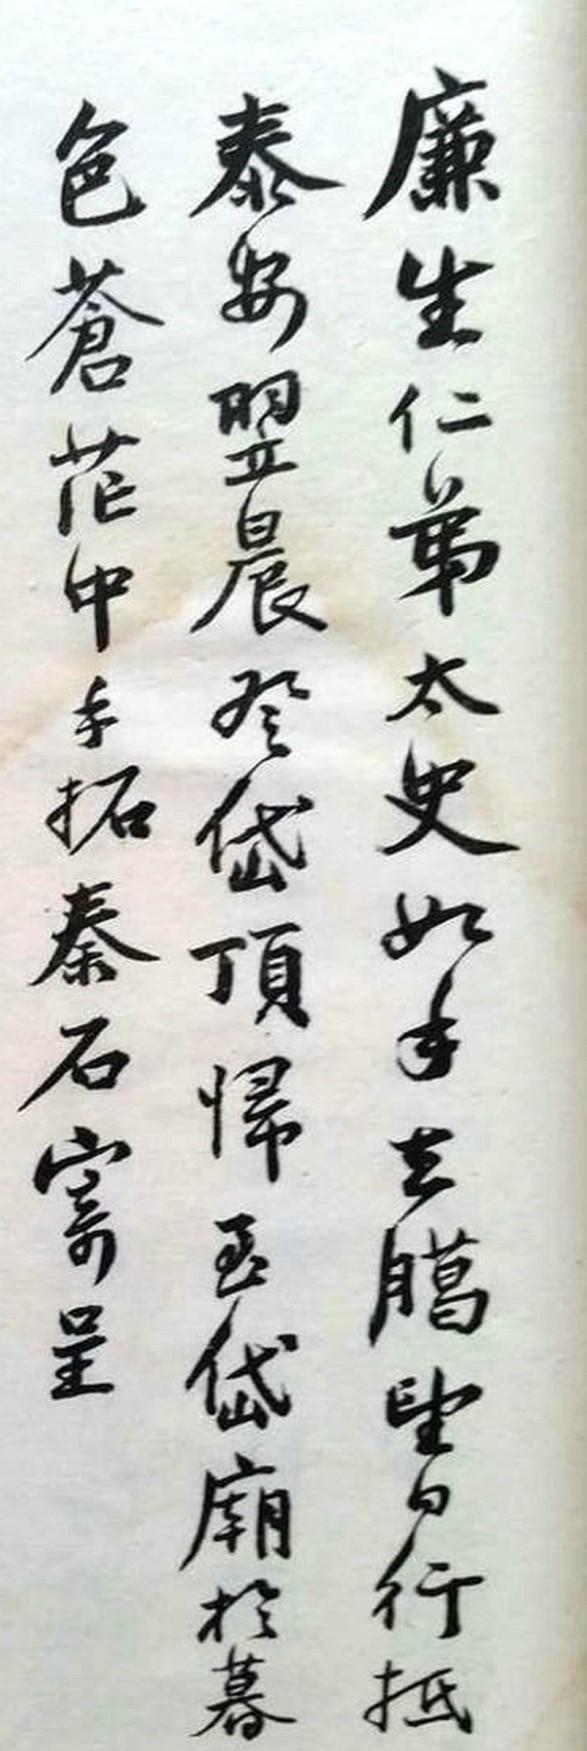 廉生仁弟太史如手去臈望日行抵
泰安翌晨登岱頂歸至岱廟於暮
色蒼茫中手拓秦石寄呈